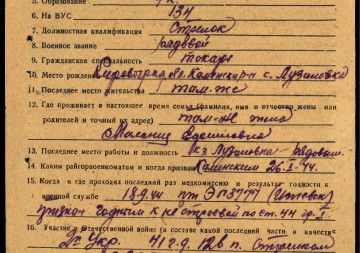 5. Образование
6. На ВУС 134
7. Должностная квалификация Стрелок
8. Военное звание рядовой
9. Гражданская специальность токарь
10. Место рождения Кировоград обл. Каменский р-н с. Лузановка
11. Последнее место жительства там-же
12. Где проживает в настоящее время семья (фамилия, имя и отчество жены или
родителей и точный их адрес) там-же жена
13. Последнее место работы и должность к-з Лузановка рядовым
14. Каким райгорвоенкоматом и когда призван Каменским 26.I.44.
15. Когда и где проходил последний раз медкомиссию и результат годности к
военной службе 18.9.44 ЭГ 3777
признан годным к нестроевой по ст. 44 гр. I
16. Участие в Отечественной войне (в составе какой последней части и в качестве
2й Укр. 41 г.д. 126 п. Стрелком